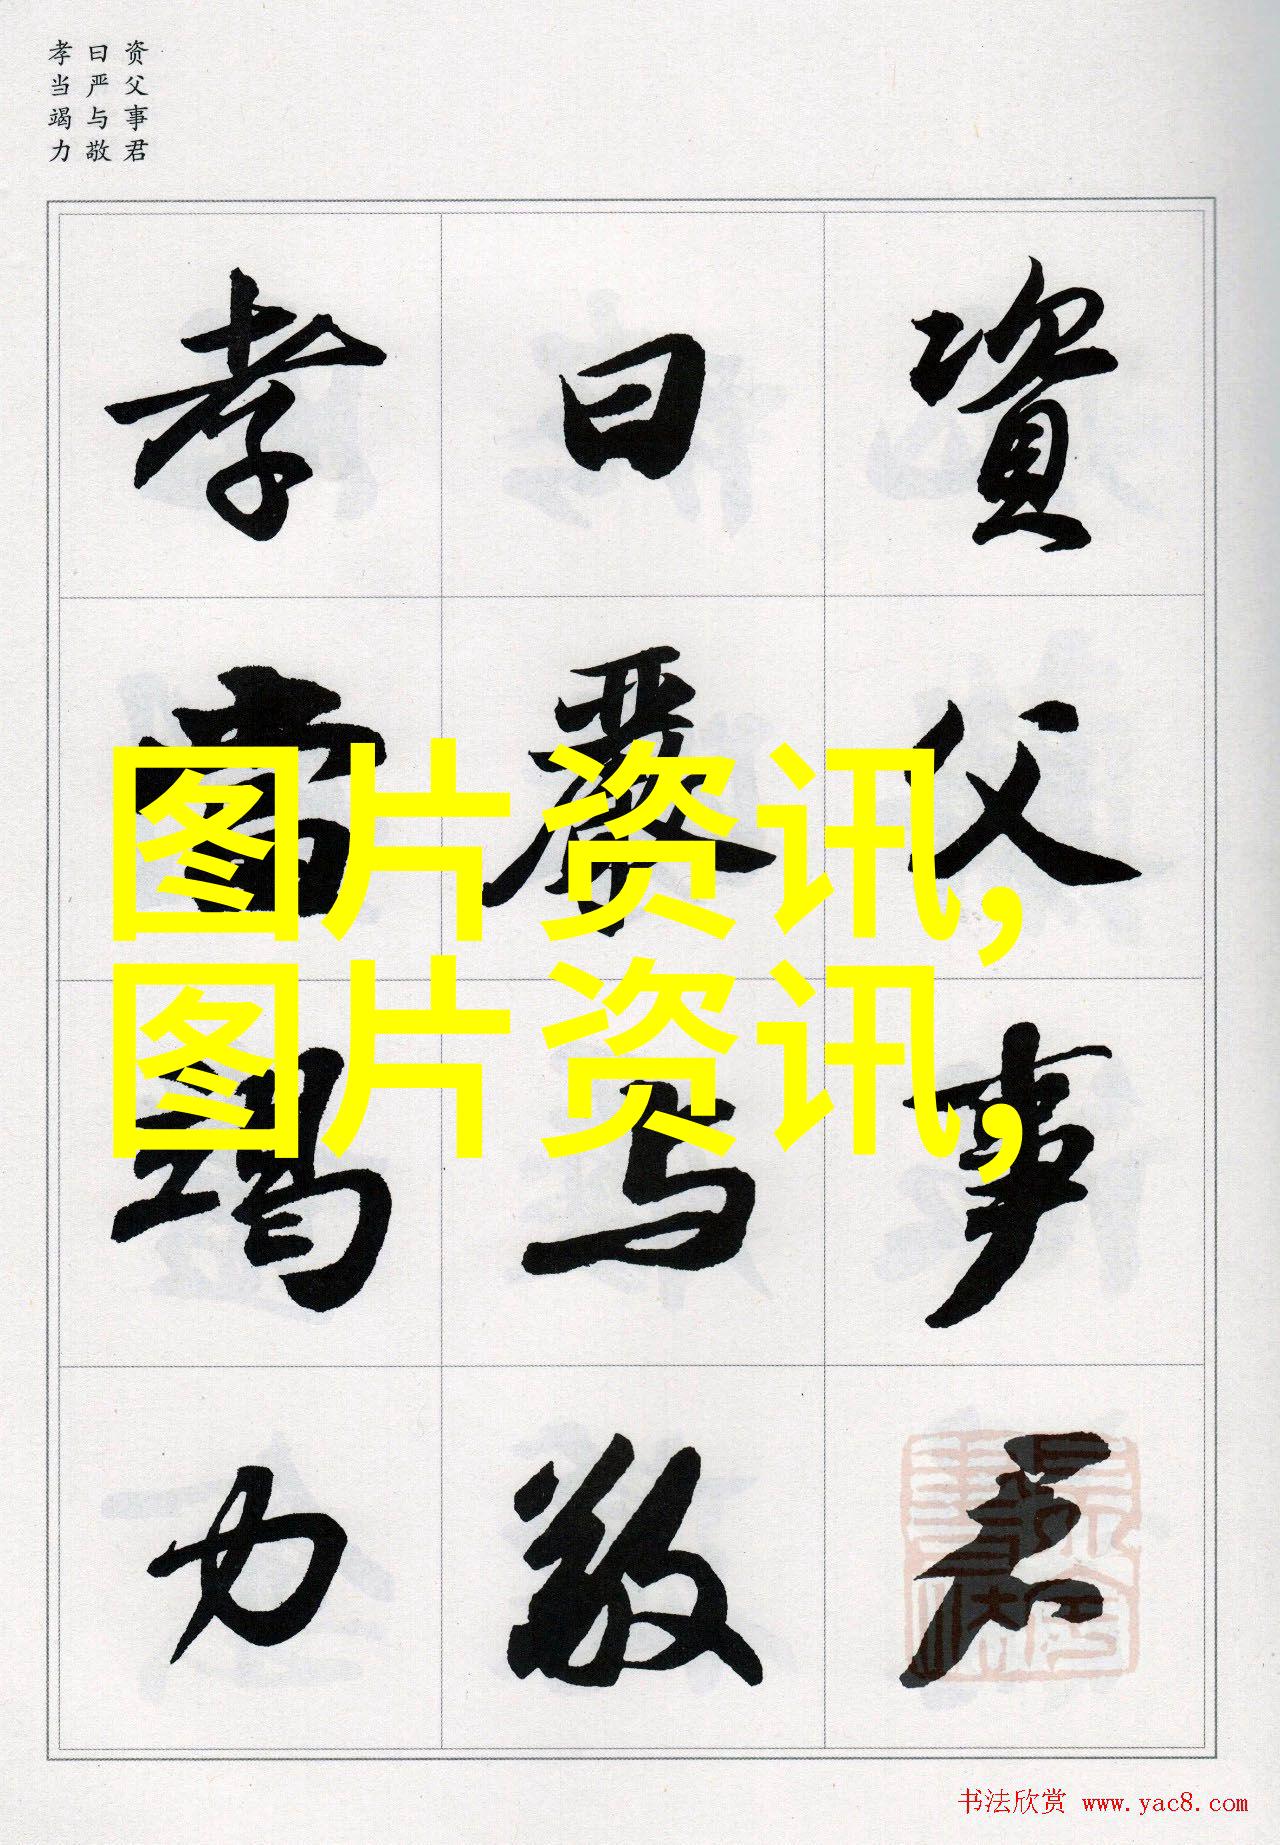 资父事君
曰严与敬
孝当竭力
資父事君
曰嚴与敬
孝當竭力
图片资讯,
图片资讯,
书法欣赏 www.yac8.com